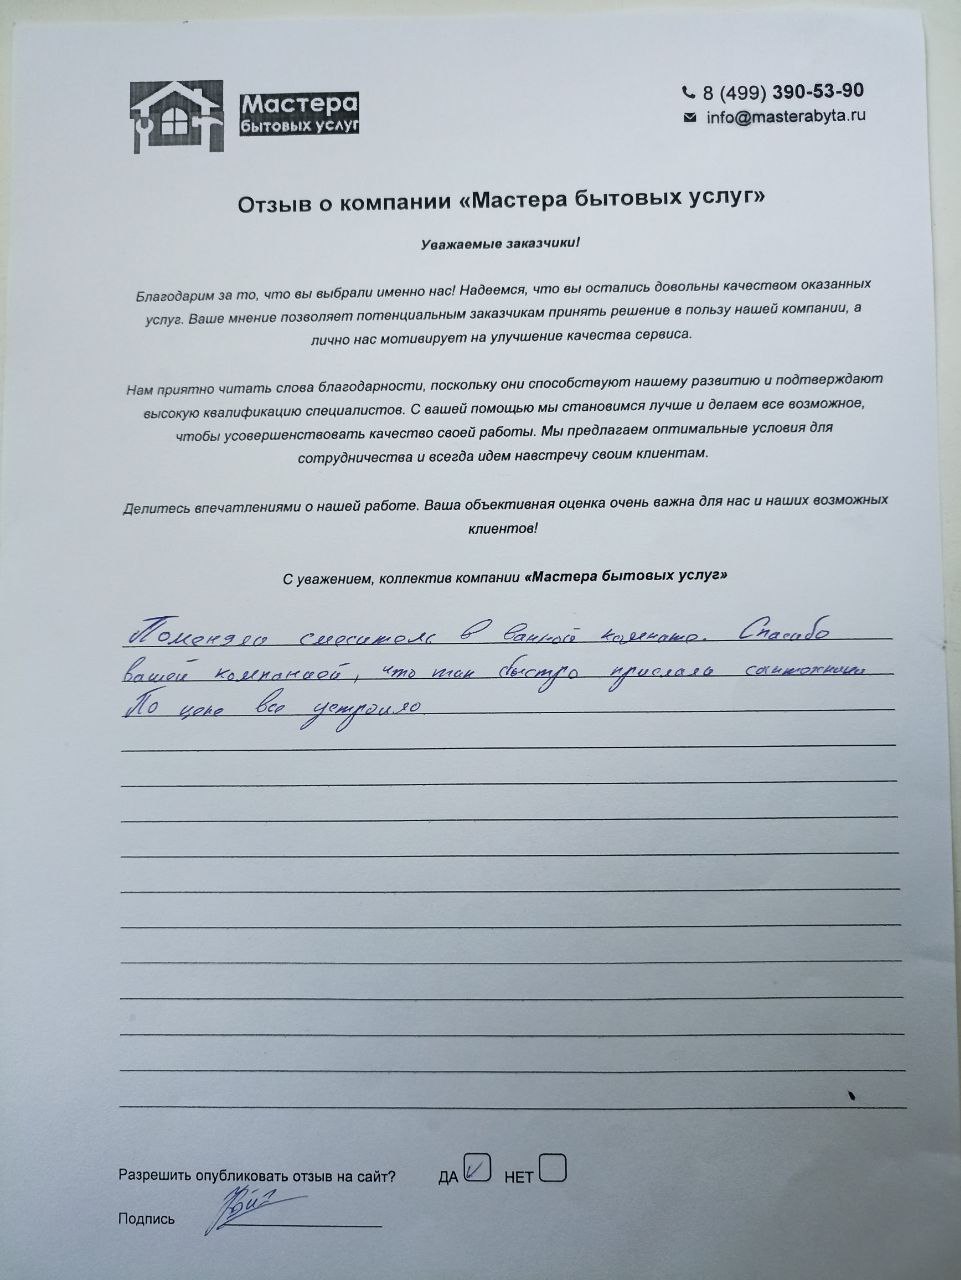 Мастера
бытовых услуг
8 (499) 390-53-90
info@masterabyta.ru
Отзыв о компании «Мастера бытовых услуг»
Уважаемые заказчики!
Благодарим за то, что вы выбрали именно нас! Надеемся, что вы остались довольны качеством оказанных
услуг. Ваше мнение позволяет потенциальным заказчикам принять решение в пользу нашей компании, а
лично нас мотивирует на улучшение качества сервиса.
Нам приятно читать слова благодарности, поскольку они способствуют нашему развитию и подтверждают
высокую квалификацию специалистов. С вашей помощью мы становимся лучше и делаем все возможное,
чтобы усовершенствовать качество своей работы. Мы предлагаем оптимальные условия для
сотрудничества и всегда идем навстречу своим клиентам.
Делитесь впечатлениями о нашей работе. Ваша объективная оценка очень важна для нас и наших возможных
клиентов!
С уважением, коллектив компании «Мастера бытовых услуг»
Поменяли смеситель в ванной комнате. Спасибо
вашей компанией, что так быстро прислали сантехника
По цене все устроило
Разрешить опубликовать отзыв на сайт? ДА НЕТ
Подпись